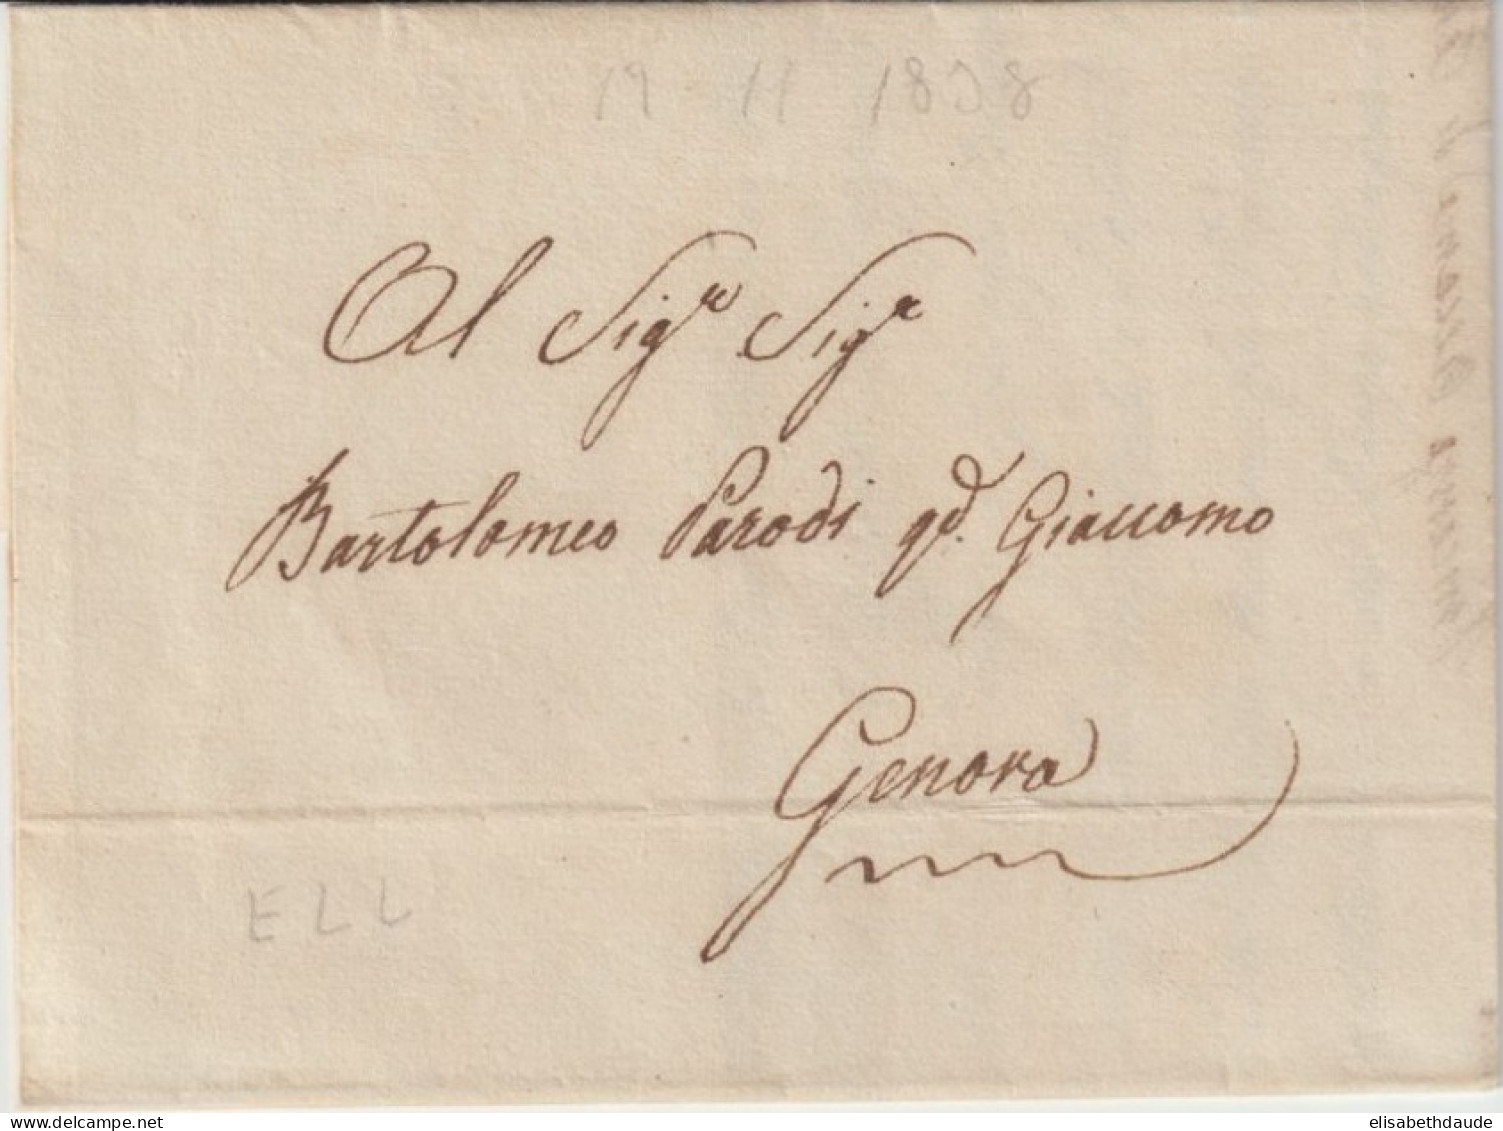 19 11 1838
Al Sig.re Sig.re
Bartolomeo Parodi qd. Giaccomo
Genova
ELL
delcampe.net
elisabethdaude